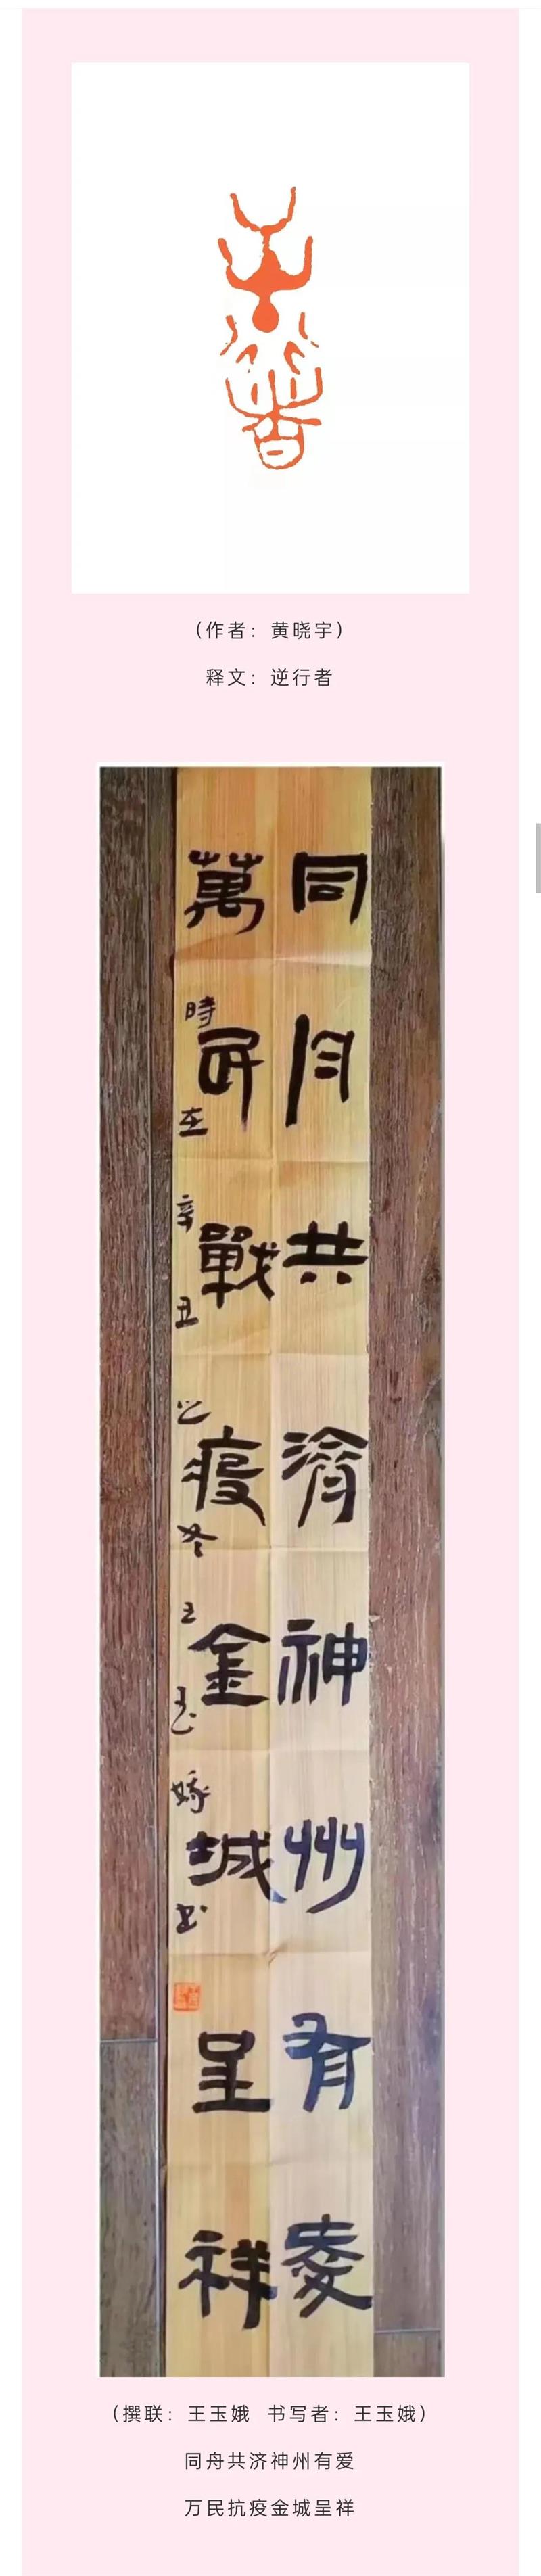 (作者：黄晓宇)
释文：逆行者
同舟共济神州有爱
萬民戰疫金城呈祥
時在辛丑之冬王玉娥书
(撰联：王玉娥 书写者：王玉娥)
同舟共济神州有爱
万民抗疫金城呈祥